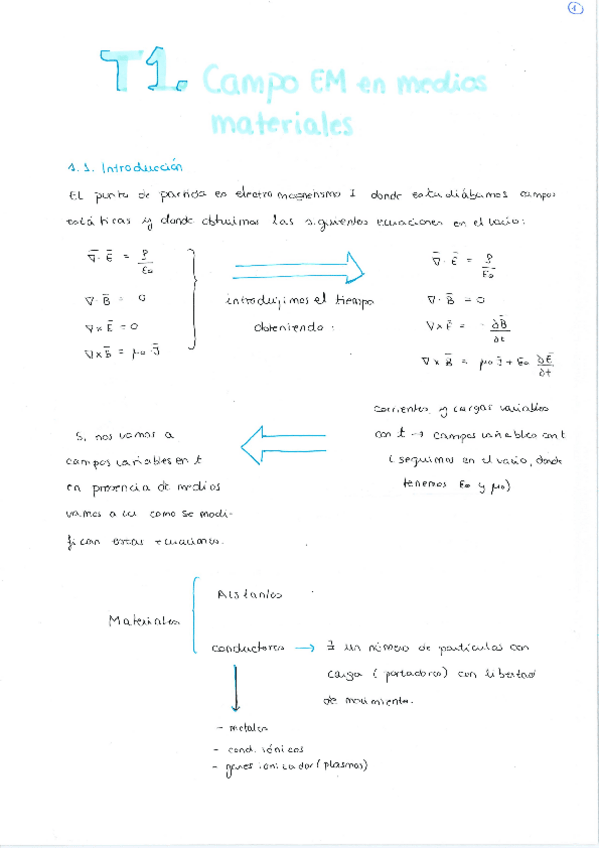 1
T1. Campo EM en medios
materiales
1.1. Introducción
El punto de partida es electromagnetismo I donde estudiábamos campos
estáticos y donde obtuvimos las siguientes ecuaciones en el vacío:
∇·E̅ = ρ/ε₀
∇·B̅ = 0
∇×E̅ = 0
∇×B̅ = μ₀·J̅
introdujimos el tiempo
obteniendo:
∇·E̅ = ρ/ε₀
∇·B̅ = 0
∇×E̅ = -∂B̅/∂t
∇×B̅ = μ₀ J̅ + ε₀ ∂E̅/∂t
corrientes y cargas variables
con t → campos variables con t
(seguimos en el vacío, donde
tenemos ε₀ y μ₀)
Si nos vamos a
campos variables en t
en presencia de medios
vamos a ver como se modi-
fican estas ecuaciones.
Materiales
Aislantes
conductores → ∃ un número de partículas con
carga (portadores) con libertad
de movimiento.
- metales
- cond. iónicos
- gases ionizados (plasmas)